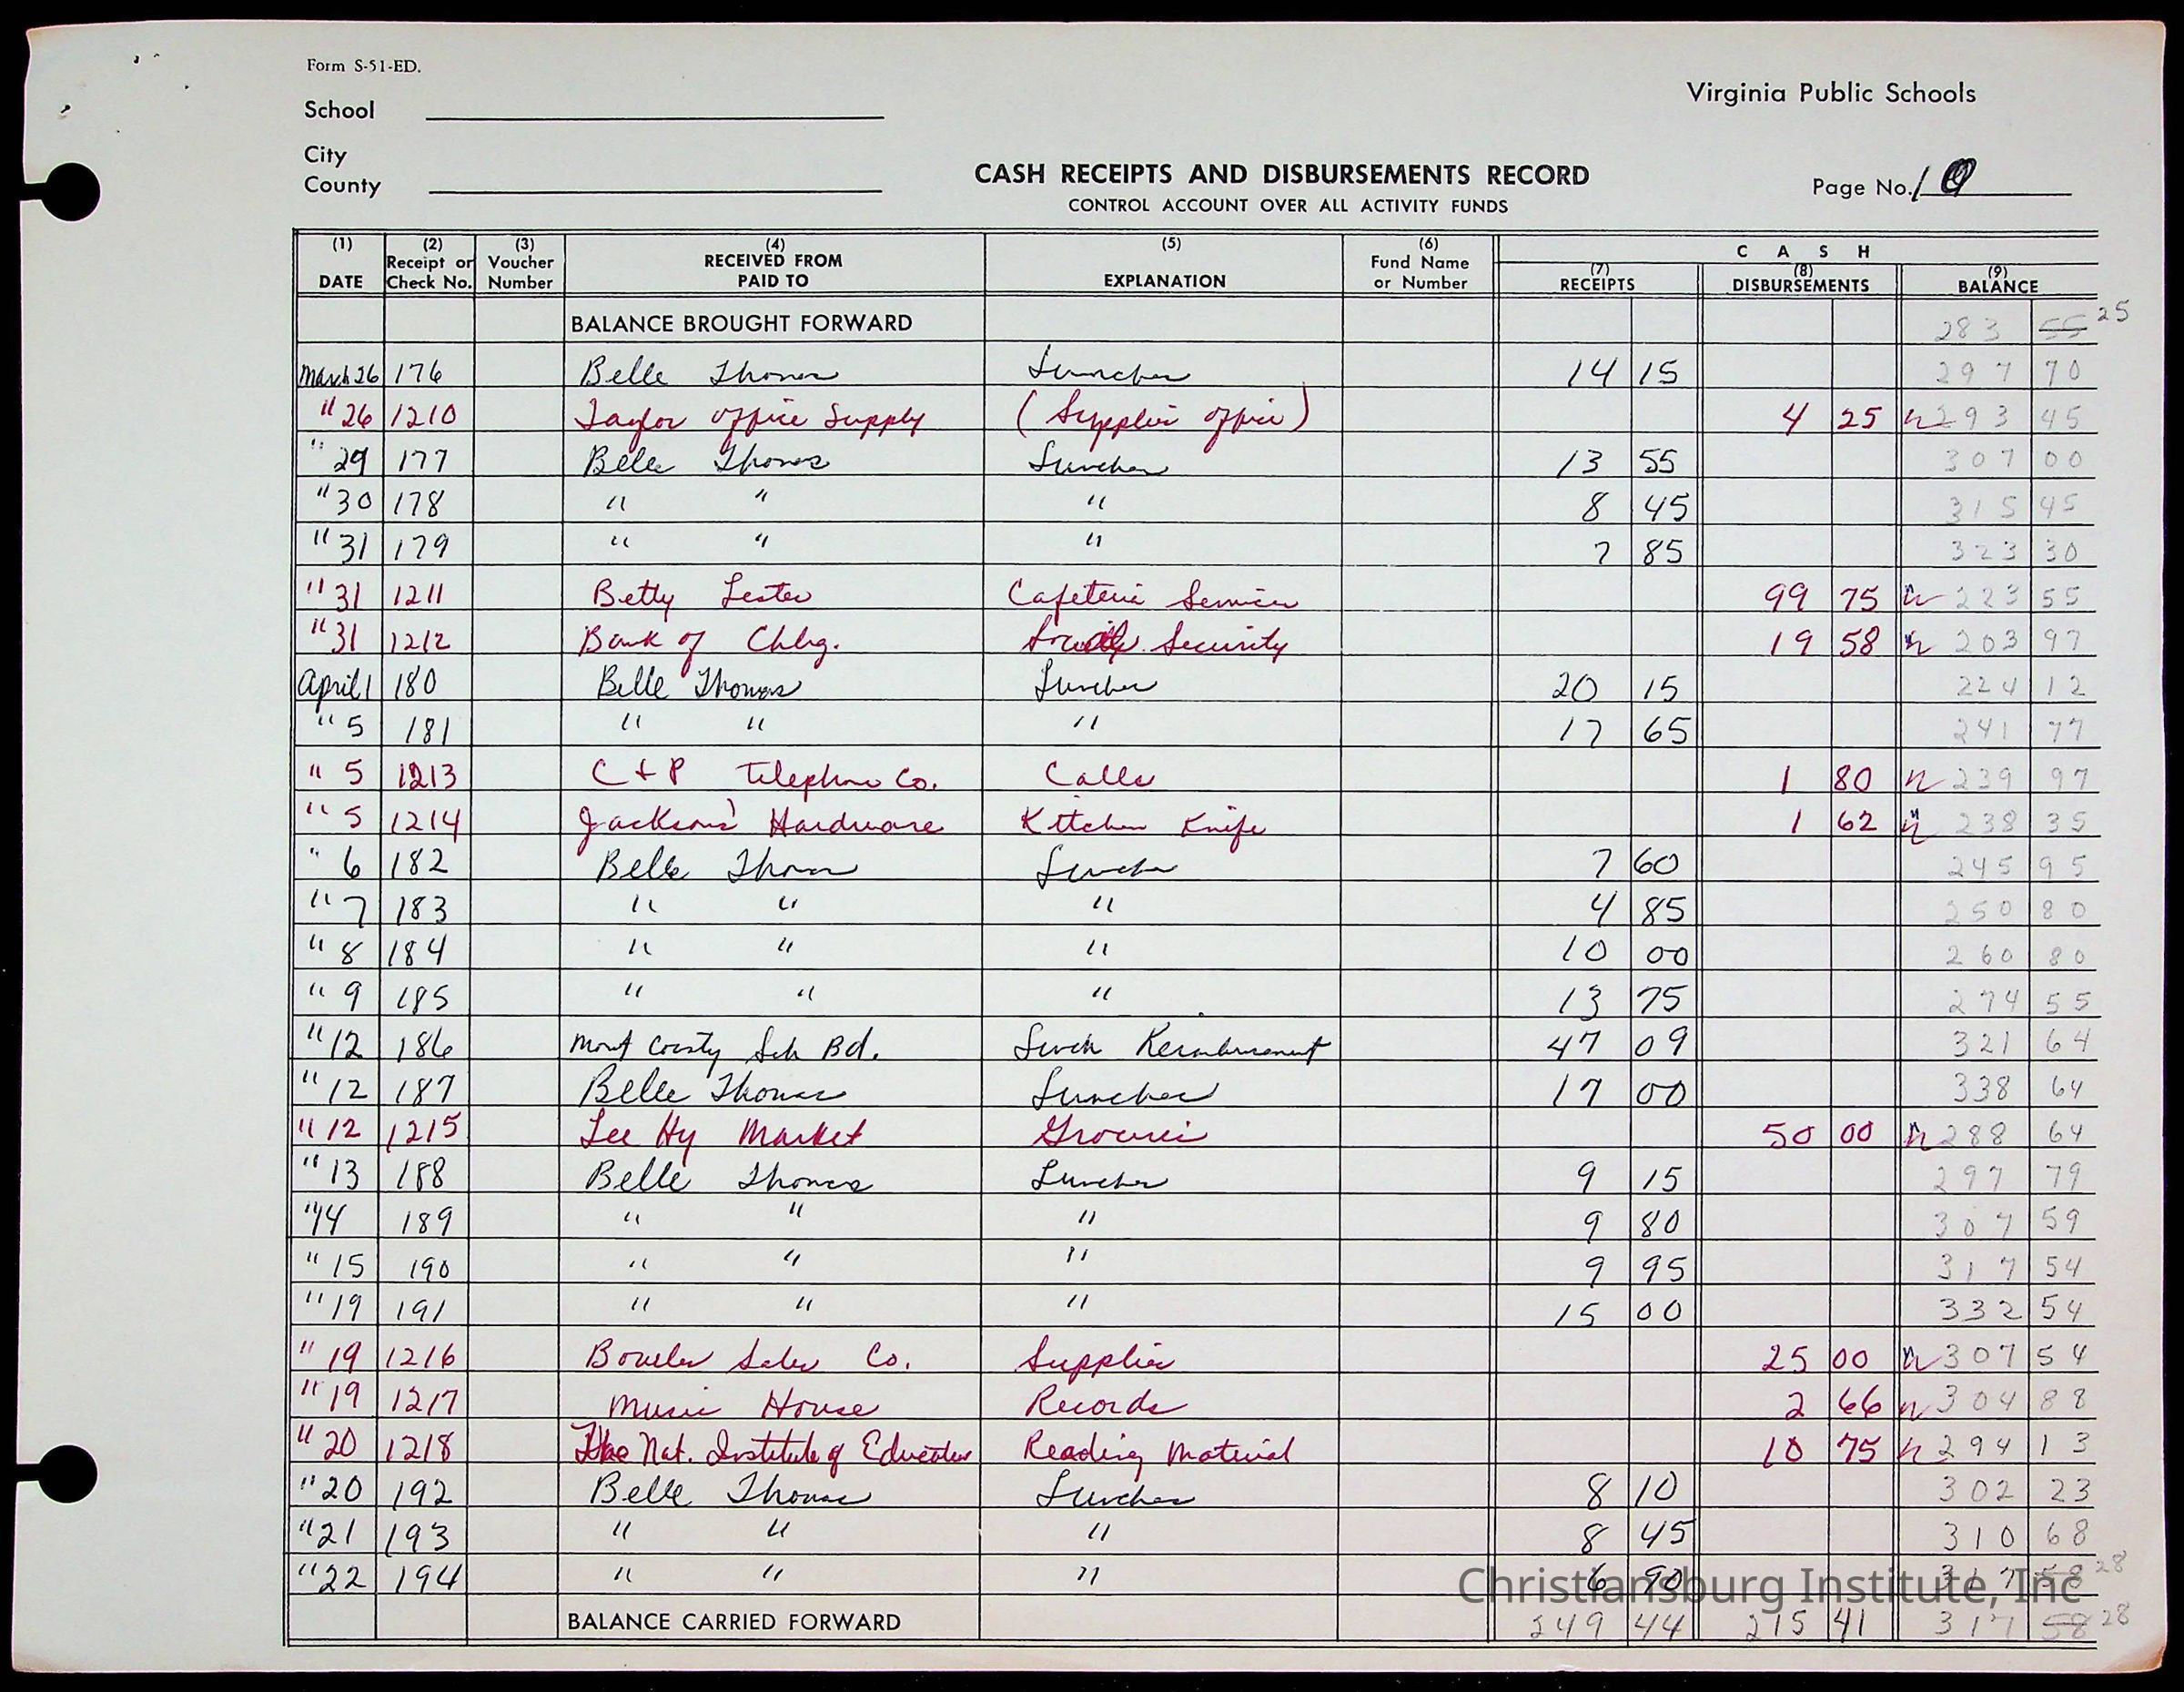 Form S-51-ED.
Virginia Public Schools
School
City
County
CASH RECEIPTS AND DISBURSEMENTS RECORD
CONTROL ACCOUNT OVER ALL ACTIVITY FUNDS
Page No. 10
(1) (2) (3) (4) (5) (6) C A S H
DATE Receipt or Check No. Voucher Number RECEIVED FROM PAID TO EXPLANATION Fund Name or Number (7) RECEIPTS (8) DISBURSEMENTS (9) BALANCE
BALANCE BROUGHT FORWARD 283 55 25
March 26 176 Belle Thomas Lunches 14 15 297 70
" 26 1210 Taylor Office Supply (Supplies office) 4 25 293 45
" 29 177 Belle Thomas Lunches 13 55 307 00
" 30 178 " " " 8 45 315 45
" 31 179 " " " 7 85 323 30
" 31 1211 Betty Lester Cafeteria Services 99 75 223 55
" 31 1212 Bank of Chbg. Security 19 58 203 97
April 1 180 Belle Thomas Lunches 20 15 224 12
" 5 181 " " " 17 65 241 77
" 5 1213 C + P Telephone Co. Calls 1 80 239 97
" 5 1214 Jackson's Hardware Kitchen Knife 1 62 238 35
" 6 182 Belle Thomas Lunches 7 60 245 95
" 7 183 " " " 4 85 250 80
" 8 184 " " " 10 00 260 80
" 9 185 " " " 13 75 274 55
" 12 186 Mont County Sch Bd. Lunch Reimbursement 47 09 321 64
" 12 187 Belle Thomas Lunches 17 00 338 64
" 12 1215 Lee Hy Market Groceries 50 00 288 64
" 13 188 Belle Thomas Lunches 9 15 297 79
" 14 189 " " " 9 80 307 59
" 15 190 " " " 9 95 317 54
" 19 191 " " " 15 00 332 54
" 19 1216 Sales Co. Supplies 25 00 307 54
" 19 1217 Music House Records 2 66 304 88
" 20 1218 The Nat. Institute of Education Reading Material 10 75 294 13
" 20 192 Belle Thomas Lunches 8 10 302 23
" 21 193 " " " 8 45 310 68
" 22 194 " " " 6 90 317 58 28
BALANCE CARRIED FORWARD 249 44 215 41 317 58 28
Christiansburg Institute, Inc